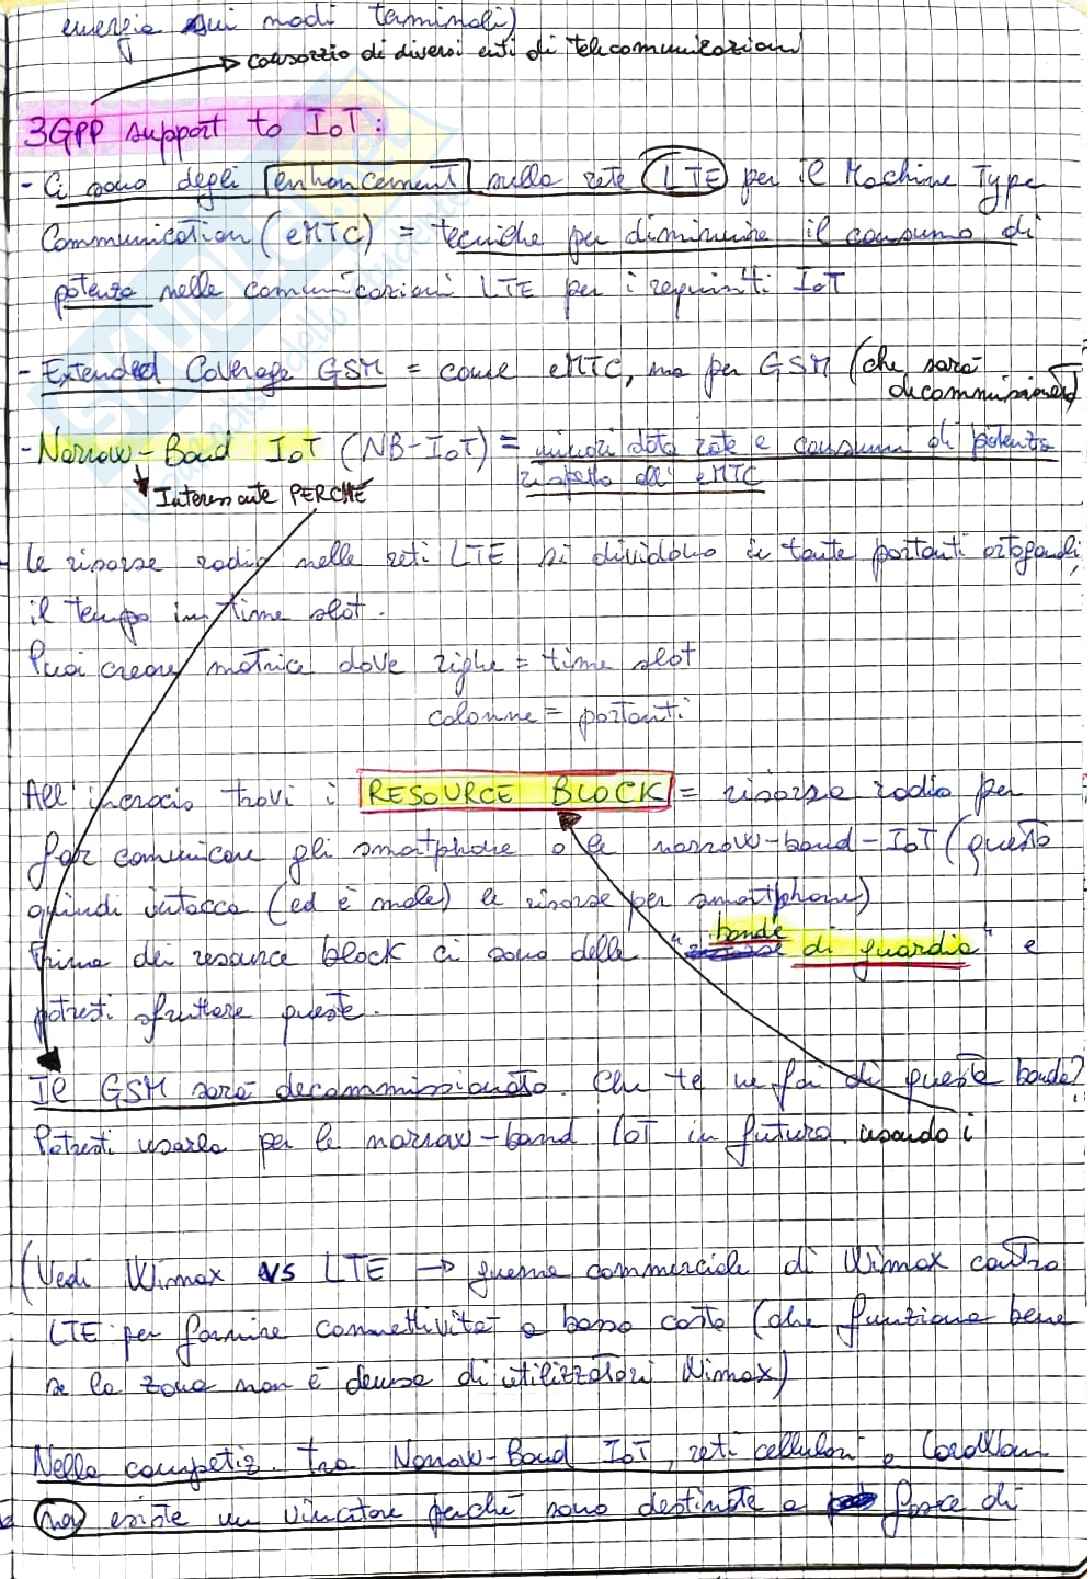 energia sui nodi terminali)
consorzio di diversi enti di telecomunicazioni
3GPP support to IoT:
- Ci sono degli enhancement nella rete LTE per il Machine Type
Communication (eMTC) = tecniche per diminuire il consumo di
potenza nelle comunicazioni LTE per i requisiti IoT
- Extended Coverage GSM = come eMTC, ma per GSM (che sarà
decommissionato)
- Narrow-Band IoT (NB-IoT) = minori data rate e consumi di potenza
rispetto all' eMTC
Interessante PERCHÉ
Le risorse radio nelle reti LTE si dividono in tante portanti ortogonali,
il tempo in time slot.
Puoi creare matrice dove righe = time slot
colonne = portanti
All'incrocio trovi i RESOURCE BLOCK = risorse radio per
far comunicare gli smartphone o le narrow-band-IoT (questo
quindi intacca (ed è male) le risorse per smartphone)
Prima dei resource block ci sono delle "bande di guardia" e
potresti sfruttare queste.
Il GSM sarà decommissionato. Che te ne fai di queste bande?
Potresti usarle per le narrow-band IoT in futuro usando i
(Vedi Wimax VS LTE → guerra commerciale di Wimax contro
LTE per fornire connettività a basso costo (che funziona bene
se la zona non è densa di utilizzatori Wimax)
Nella competiz. tra Narrow-Band IoT, reti cellulari e LoraWan
non esiste un vincitore perché sono destinate a fasce di